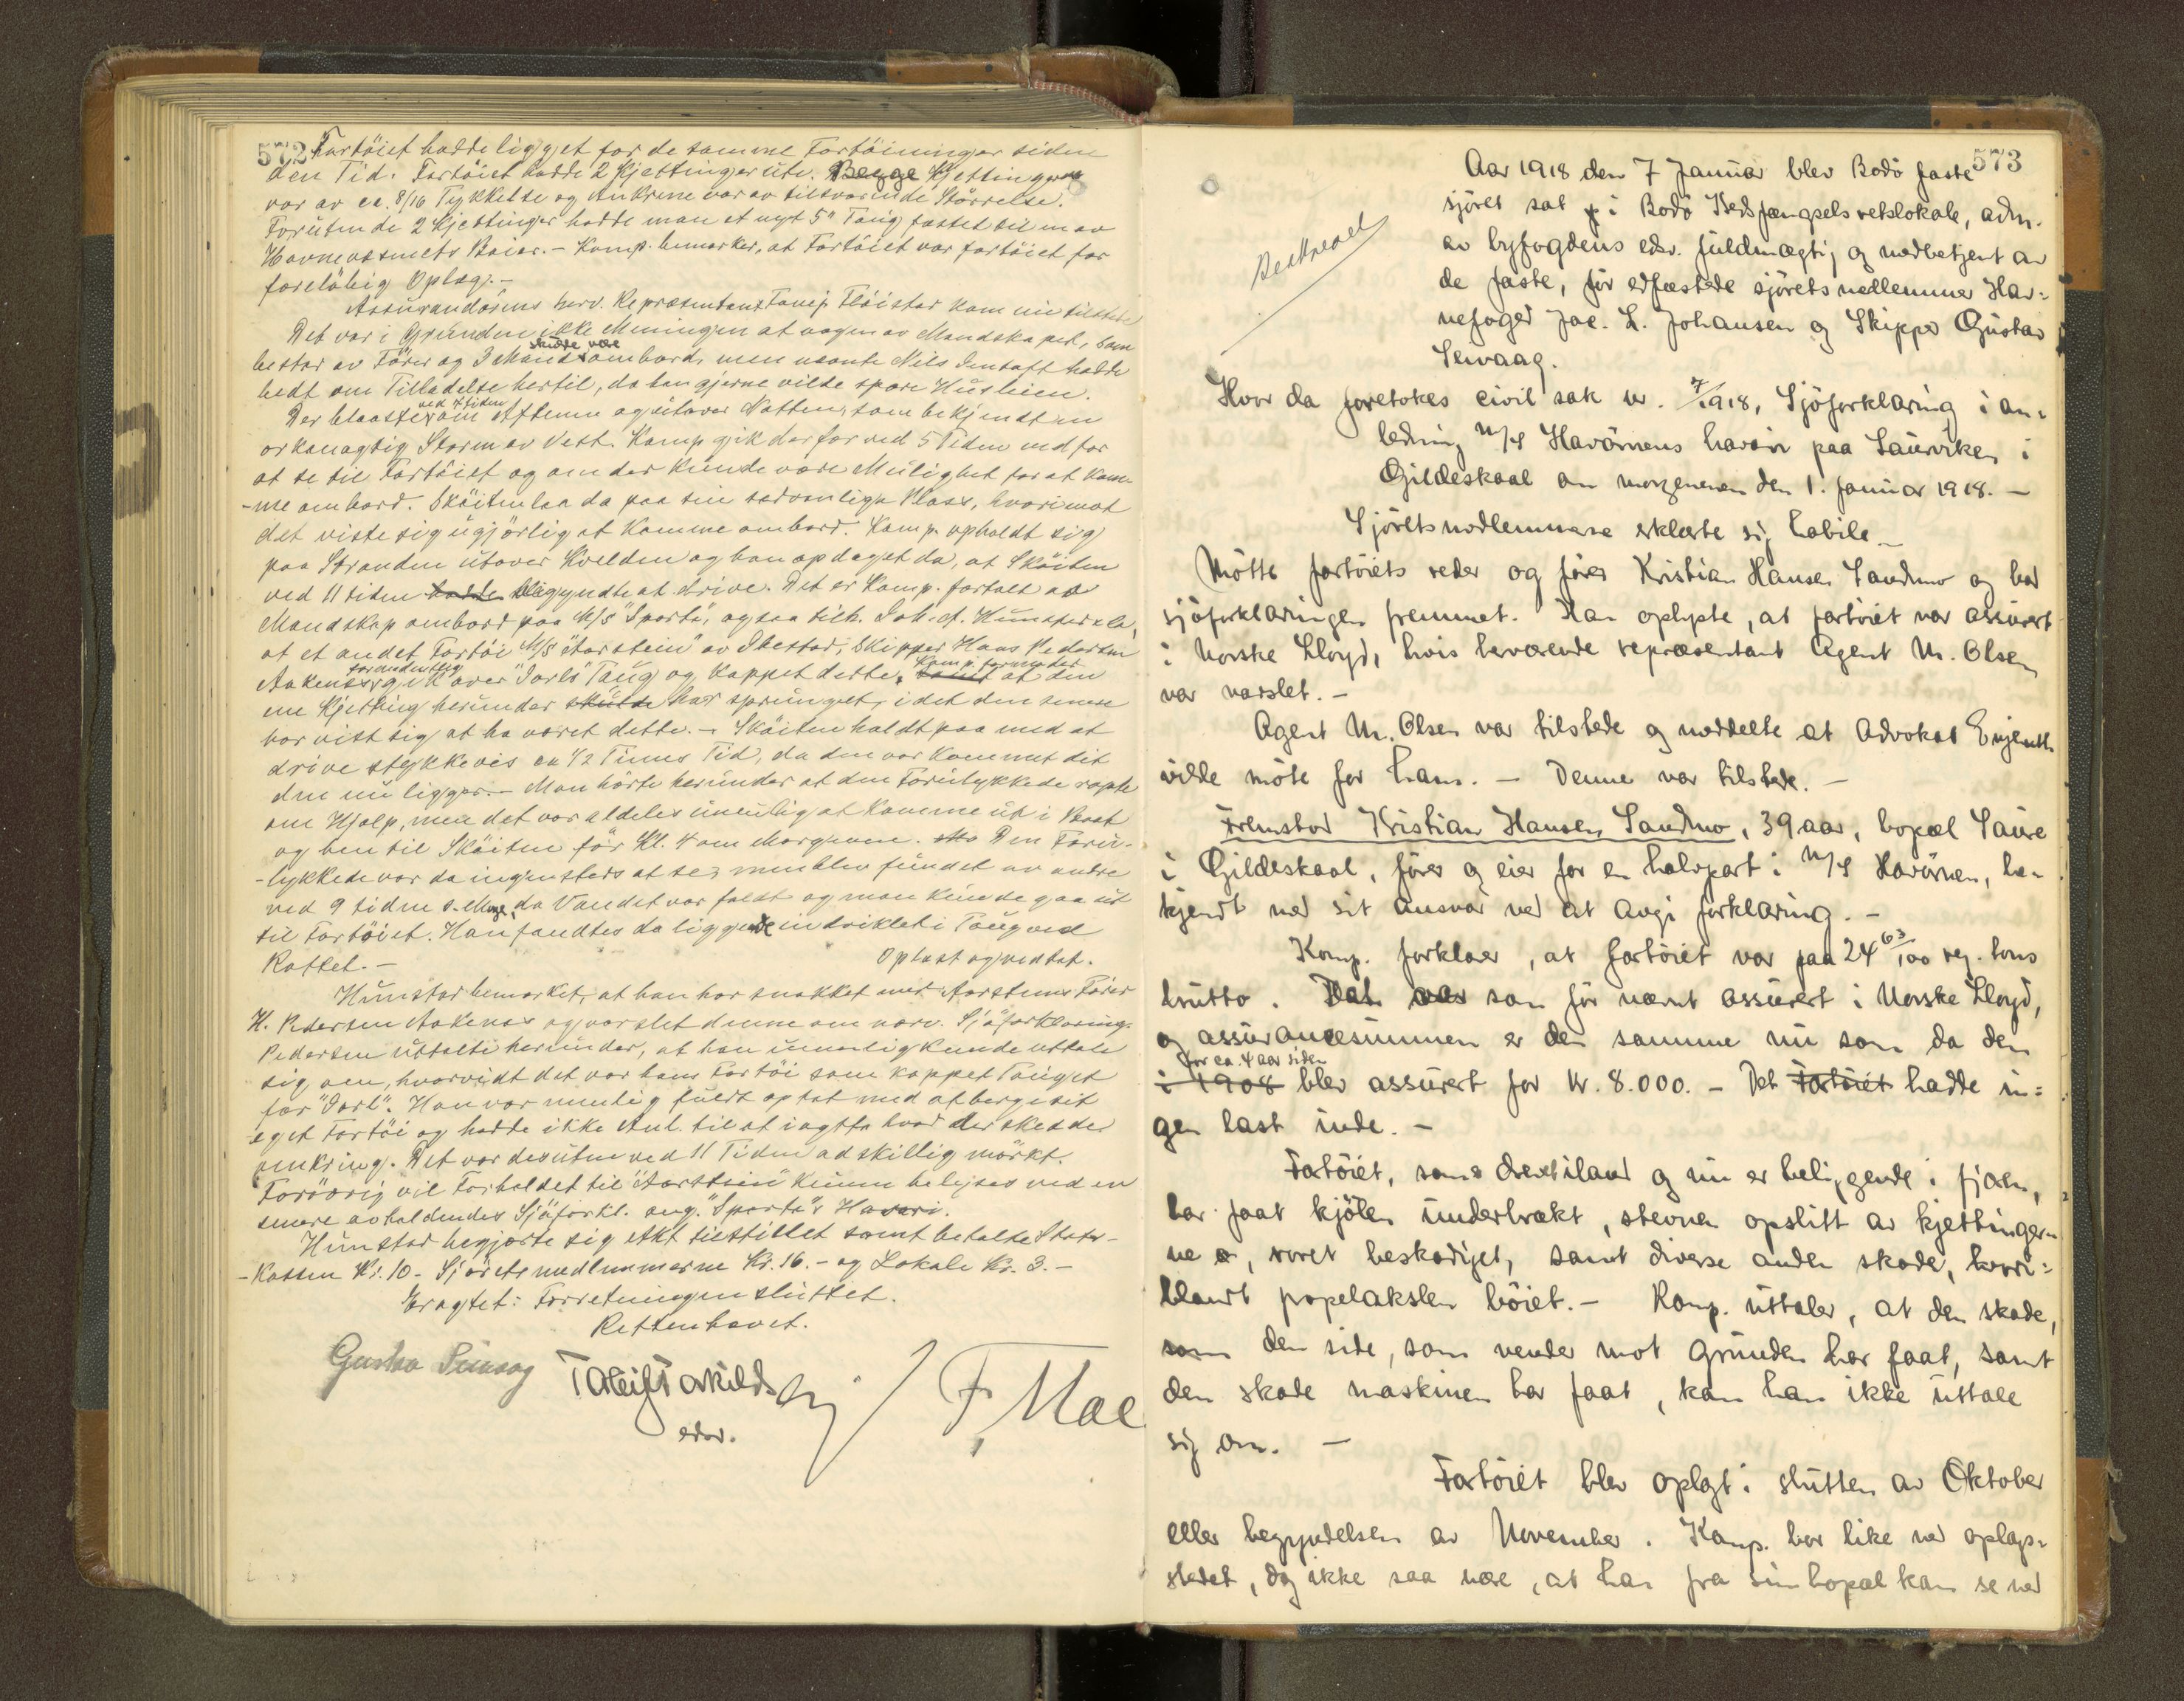 572
Fartöiet hadde ligget for de samme Fortöininger siden
den Tid. Fartöiet hadde 2 Kjettinger ute. Begge Kjettingerne
var av ca. 8/16 Tykkelse og Ankrene var av tilsvarende Störrelse.
Foruten de 2 Kjettinger hadde man et nyt 5" Taug fæstet til en av
Havnevæsenets Böier. - Komp. bemærker, at Fartöiet var fortöiet for
foreløbig Oplag. -
Assurandörens herv. Repræsentant Flöistad kom nu tilstede
Det var i Grunden ikke Meningen at nogen av Mandskapet, som
bestod av Förer og 3 Mand skulde være ombord, men nævnte Nils hadde
bedt om Tilladelse hertil, da han gjerne vilde spare Husleien.
Der blaaste ved 7 tiden om Aftenen og utover Natten, som bekjendt en
orkanagtig Storm av Vest. Komp gik derfor ved 5 Tiden ned for
at se til Fartöiet og om der kunde være Mulighet for at kom-
-me ombord. Sköiten laa da paa sin sedvanlige Plass, hvorimot
det viste sig ugjörlig at komme ombord. Komp. opholdt sig
paa Stranden utover Kvelden og han opdaget da, at Sköiten
ved 11 tiden hadde begyndte at drive. Det er Komp. fortalt av
Mandskap ombord paa M/S "Sporto", ogsaa tilh. Joh. A. Hunstad
at et andet Fartöi M/S "Aarstein" av Ibestad, Skipper Hans Pedersen
Aakenes forendentlig gik over "Jarls" Taug og kappet dette. Komp. formoder at den
ene Kjetting herunder skulde har sprunget, idet den senere
har vist sig at ha været dette. - Sköiten holdt paa med at
drive stykkevis ca 1/2 Times Tid, da den var kommet dit
den nu ligger. - Man hörte herunder at den Forulykkede ropte
om Hjælp, men det var aldeles umulig at komme ut i Baat
og hen til Sköiten för Kl. 4 om Morgenen. Den Foru-
-lykkede var da ingensteds at se, men blev fundet av andre
ved 9 tiden s. Morg., da Vandet var faldt og man kunde gaa ut
til Fartöiet. Han fandtes da liggende indviklet i Taug ved
Rattet. - Oplæst og vedtat.
Hunstad bemerket, at han har snakket med Aarsteins Förer
H. Pedersen Aakenes og varslet denne om nærv. Sjöforklaring.
Pedersen uttalte herunder, at han umulig kunde uttale
sig om, hvorvidt det var hans Fartöi som kappet Tauget
for "Jarl". Han var nemlig fuldt optat med at berge sit
eget Fartöi og hadde ikke Anl. til at iagtta hvad der skedde
omkring. Det var desuten ved 11 Tiden adskillig mörkt.
Forövrig vil Forholdet til "Aarstein" kunne belyses ved en
senere avholdendes Sjöforkl. ang. "Sporto's" Havari.
Hunstad begjærte sig Akt tilstillet samt betalte Stats-
-kassen Kr. 10 - Sjöretsmedlemmerne Kr. 16. - og Lokale Kr. 3. -
Eragtet: Forretningen sluttet.
Retten hævet.
Gustav Seivaag
edsv.
F. Moe
573
Beskrevet
Aar 1918 den 7 Januar blev Bodö faste
sjöret sat i Bodö Kredsfængsels retslokale, adm.
av byfogdens edsv. fuldmægtig og medbetjent av
de faste, för edfæstede sjöretsmedlemmer Hav=
nefoged Jac. L. Johansen og Skipper Gustav
Seivaag.
Hvor da foretokes civil sak nr. 7/1918, Sjöforklaring i an=
ledning M/S Havörnens havari paa Saurviken i
Gildeskaal om morgenen den 1. Januar 1918. -
Sjöretsmedlemmerne erklærte sig habile -
Mötte fartöiets reder og förer Kristian Hansen Sandmo og bad
sjöforklaringen fremmet. Han oplyste, at fartöiet var assurert
i Norske Lloyd, hvis herværende repræsentant Agent M. Olsen
var varslet. -
Agent M. Olsen var tilstede og meddelte at Advokat Evjenth
vilde möte for ham. - Denne var tilstede. -
Fremstod Kristian Hansen Sandmo, 39 aar, bopæl Saure
i Gildeskaal, förer og eier for en halvpart i M/S Havörnen, be-
kjendt med sit ansvar ved at avgi forklaring. -
Komp. forklarer, at fartöiet var paa 24 63/100 reg. tons
brutto. Det var som för nævnt assurert i Norske Lloyd,
og assurancesummen er den samme nu som da den
for ca. 4 aar siden
i 1908 blev assurert for kr. 8.000. - Det Fartöiet hadde in=
gen last inde. -
Fartöiet, som drev iland og nu er beliggende i fjæren,
har faat kjölen undertrækt, stevnen opslitt av kjettinger-
ne, roret beskadiget, samt diverse anden skade, hvori=
blandt propelakslen böiet. - Komp. uttaler, at den skade,
som den side, som vender mot grunden har faat, samt
den skade maskinen har faat, kan han ikke uttale
sig om. -
Fartöiet blev oplagt i slutten av Oktober
eller begyndelsen av November. Komp. bor like ved oplags=
stedet, dog ikke saa nære, at han fra sin bopæl kan se ned